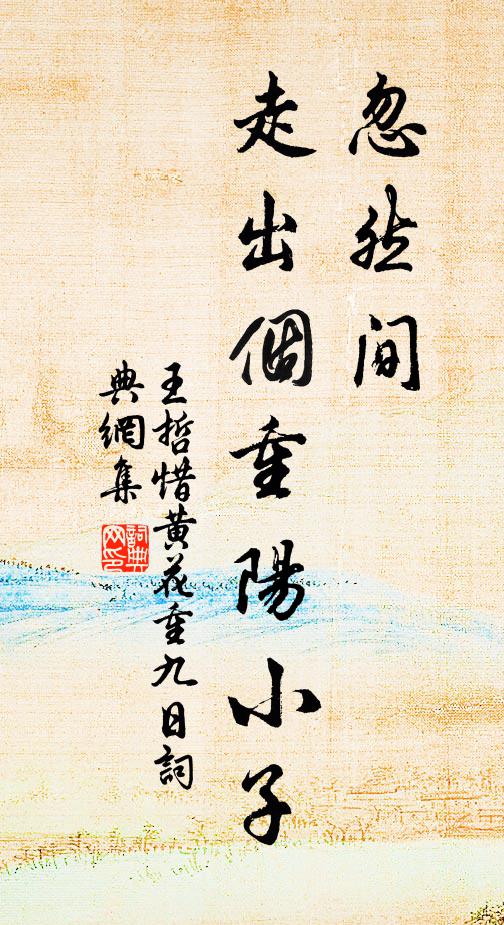 忽然间
走出個重陽小子
王哲惜黄花重九日詞
典網集
詞典
网印